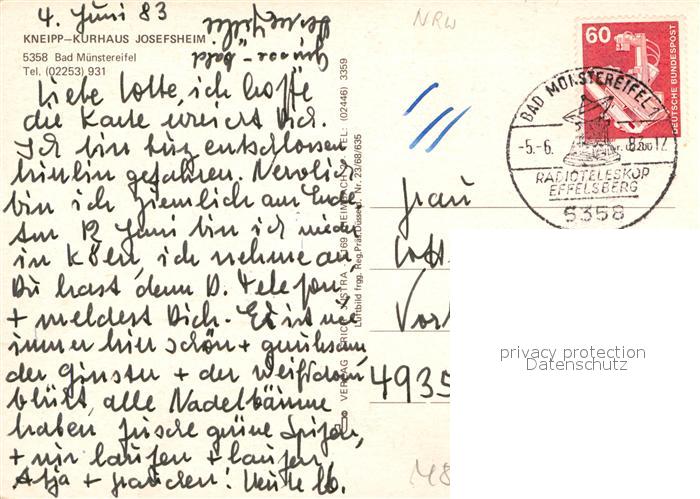 4. Juni 83
KNEIPP-KURHAUS JOSEFSHEIM
5358 Bad Münstereifel
Tel. (02253) 931
Liebe Lotte, ich hoffe
die Karte erreicht Dich.
Ich bin kurz entschlossen
hierhin gefahren. Nervlich
bin ich ziemlich am Ende
Am 12 Juni bin ich wieder
in Köln, ich nehme an
Du hast dann D. Telefon
+ meldest Dich. Es ist wie
immer hier schön + geruhsam
der Ginster + der Weißdorn
blüht, alle Nadelbäume
haben frische grüne Spitzen,
+ wir laufen + laufen
Grüsse - bald
NRW
60
DEUTSCHE BUNDESPOST
BAD MÜNSTEREIFEL 1
-5.-6.
RADIOTELESKOP
EFFELSBERG
5358
Frau
Lott
4935
privacy protection
Datenschutz
Luftbild frgg. Reg.Präs.Düsseld. Nr. 23/68/635
TEL: (02446) 3359